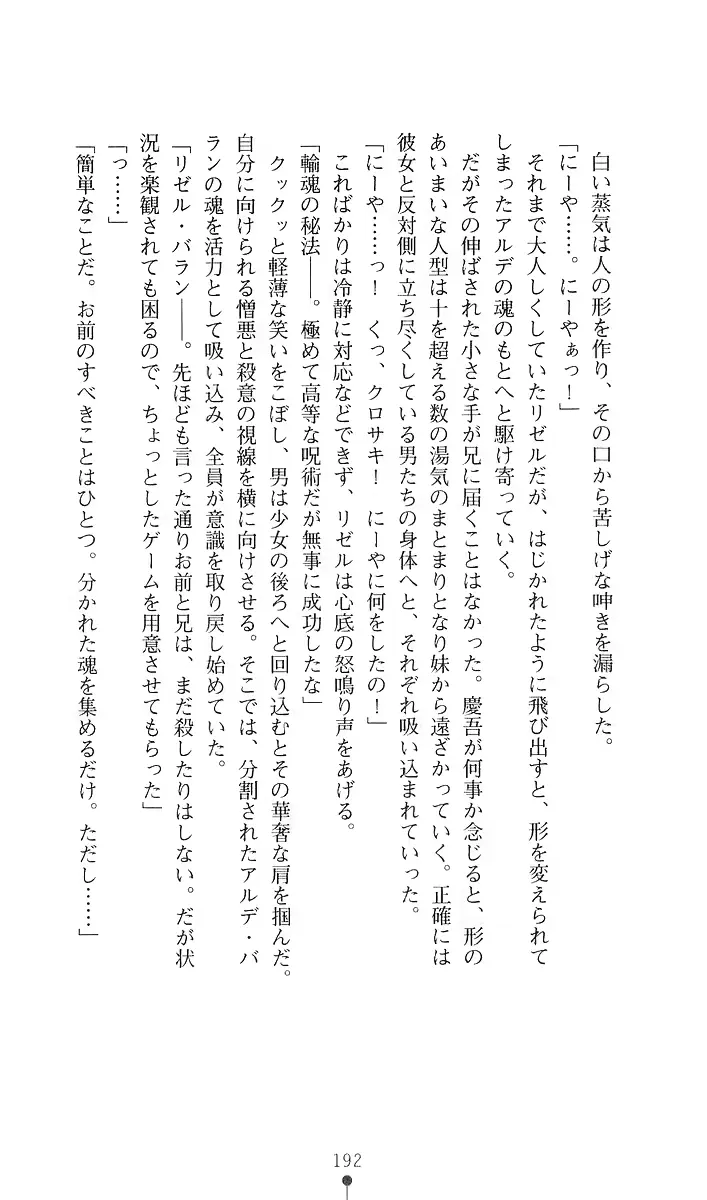 白い蒸気は人の形を作り、その口から苦しげな呻きを漏らした。
「にーや……。にーやぁっ！」
それまで大人しくしていたリゼルだが、はじかれたように飛び出すと、形を変えられて
しまったアルデの魂のもとへと駆け寄っていく。
だがその伸ばされた小さな手が兄に届くことはなかった。慶吾が何事か念じると、形の
あいまいな人型は十を超える数の湯気のまとまりとなり妹から遠ざかっていく。正確には
彼女と反対側に立ち尽くしている男たちの身体へと、それぞれ吸い込まれていった。
「にーや……っ！　くっ、クロサキ！　にーやに何をしたの！」
こればかりは冷静に対応などできず、リゼルは心底の怒鳴り声をあげる。
「輪魂の秘法――。極めて高等な呪術だが無事に成功したな」
クックッと軽薄な笑いをこぼし、男は少女の後ろへと回り込むとその華奢な肩を掴んだ。
自分に向けられる憎悪と殺意の視線を横に向けさせる。そこでは、分割されたアルデ・バ
ランの魂を活力として吸い込み、全員が意識を取り戻し始めていた。
「リゼル・バラン――。先ほども言った通りお前と兄は、まだ殺したりはしない。だが状
況を楽観されても困るので、ちょっとしたゲームを用意させてもらった」
「っ……」
「簡単なことだ。お前のすべきことはひとつ。分かれた魂を集めるだけ。ただし……」
192